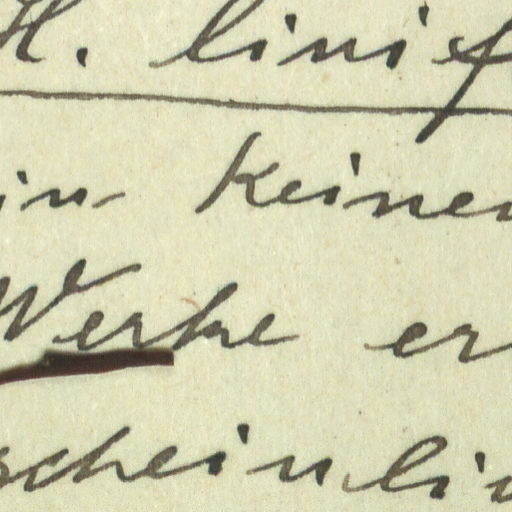 H. linif
in keinen
Werke er
scheinli